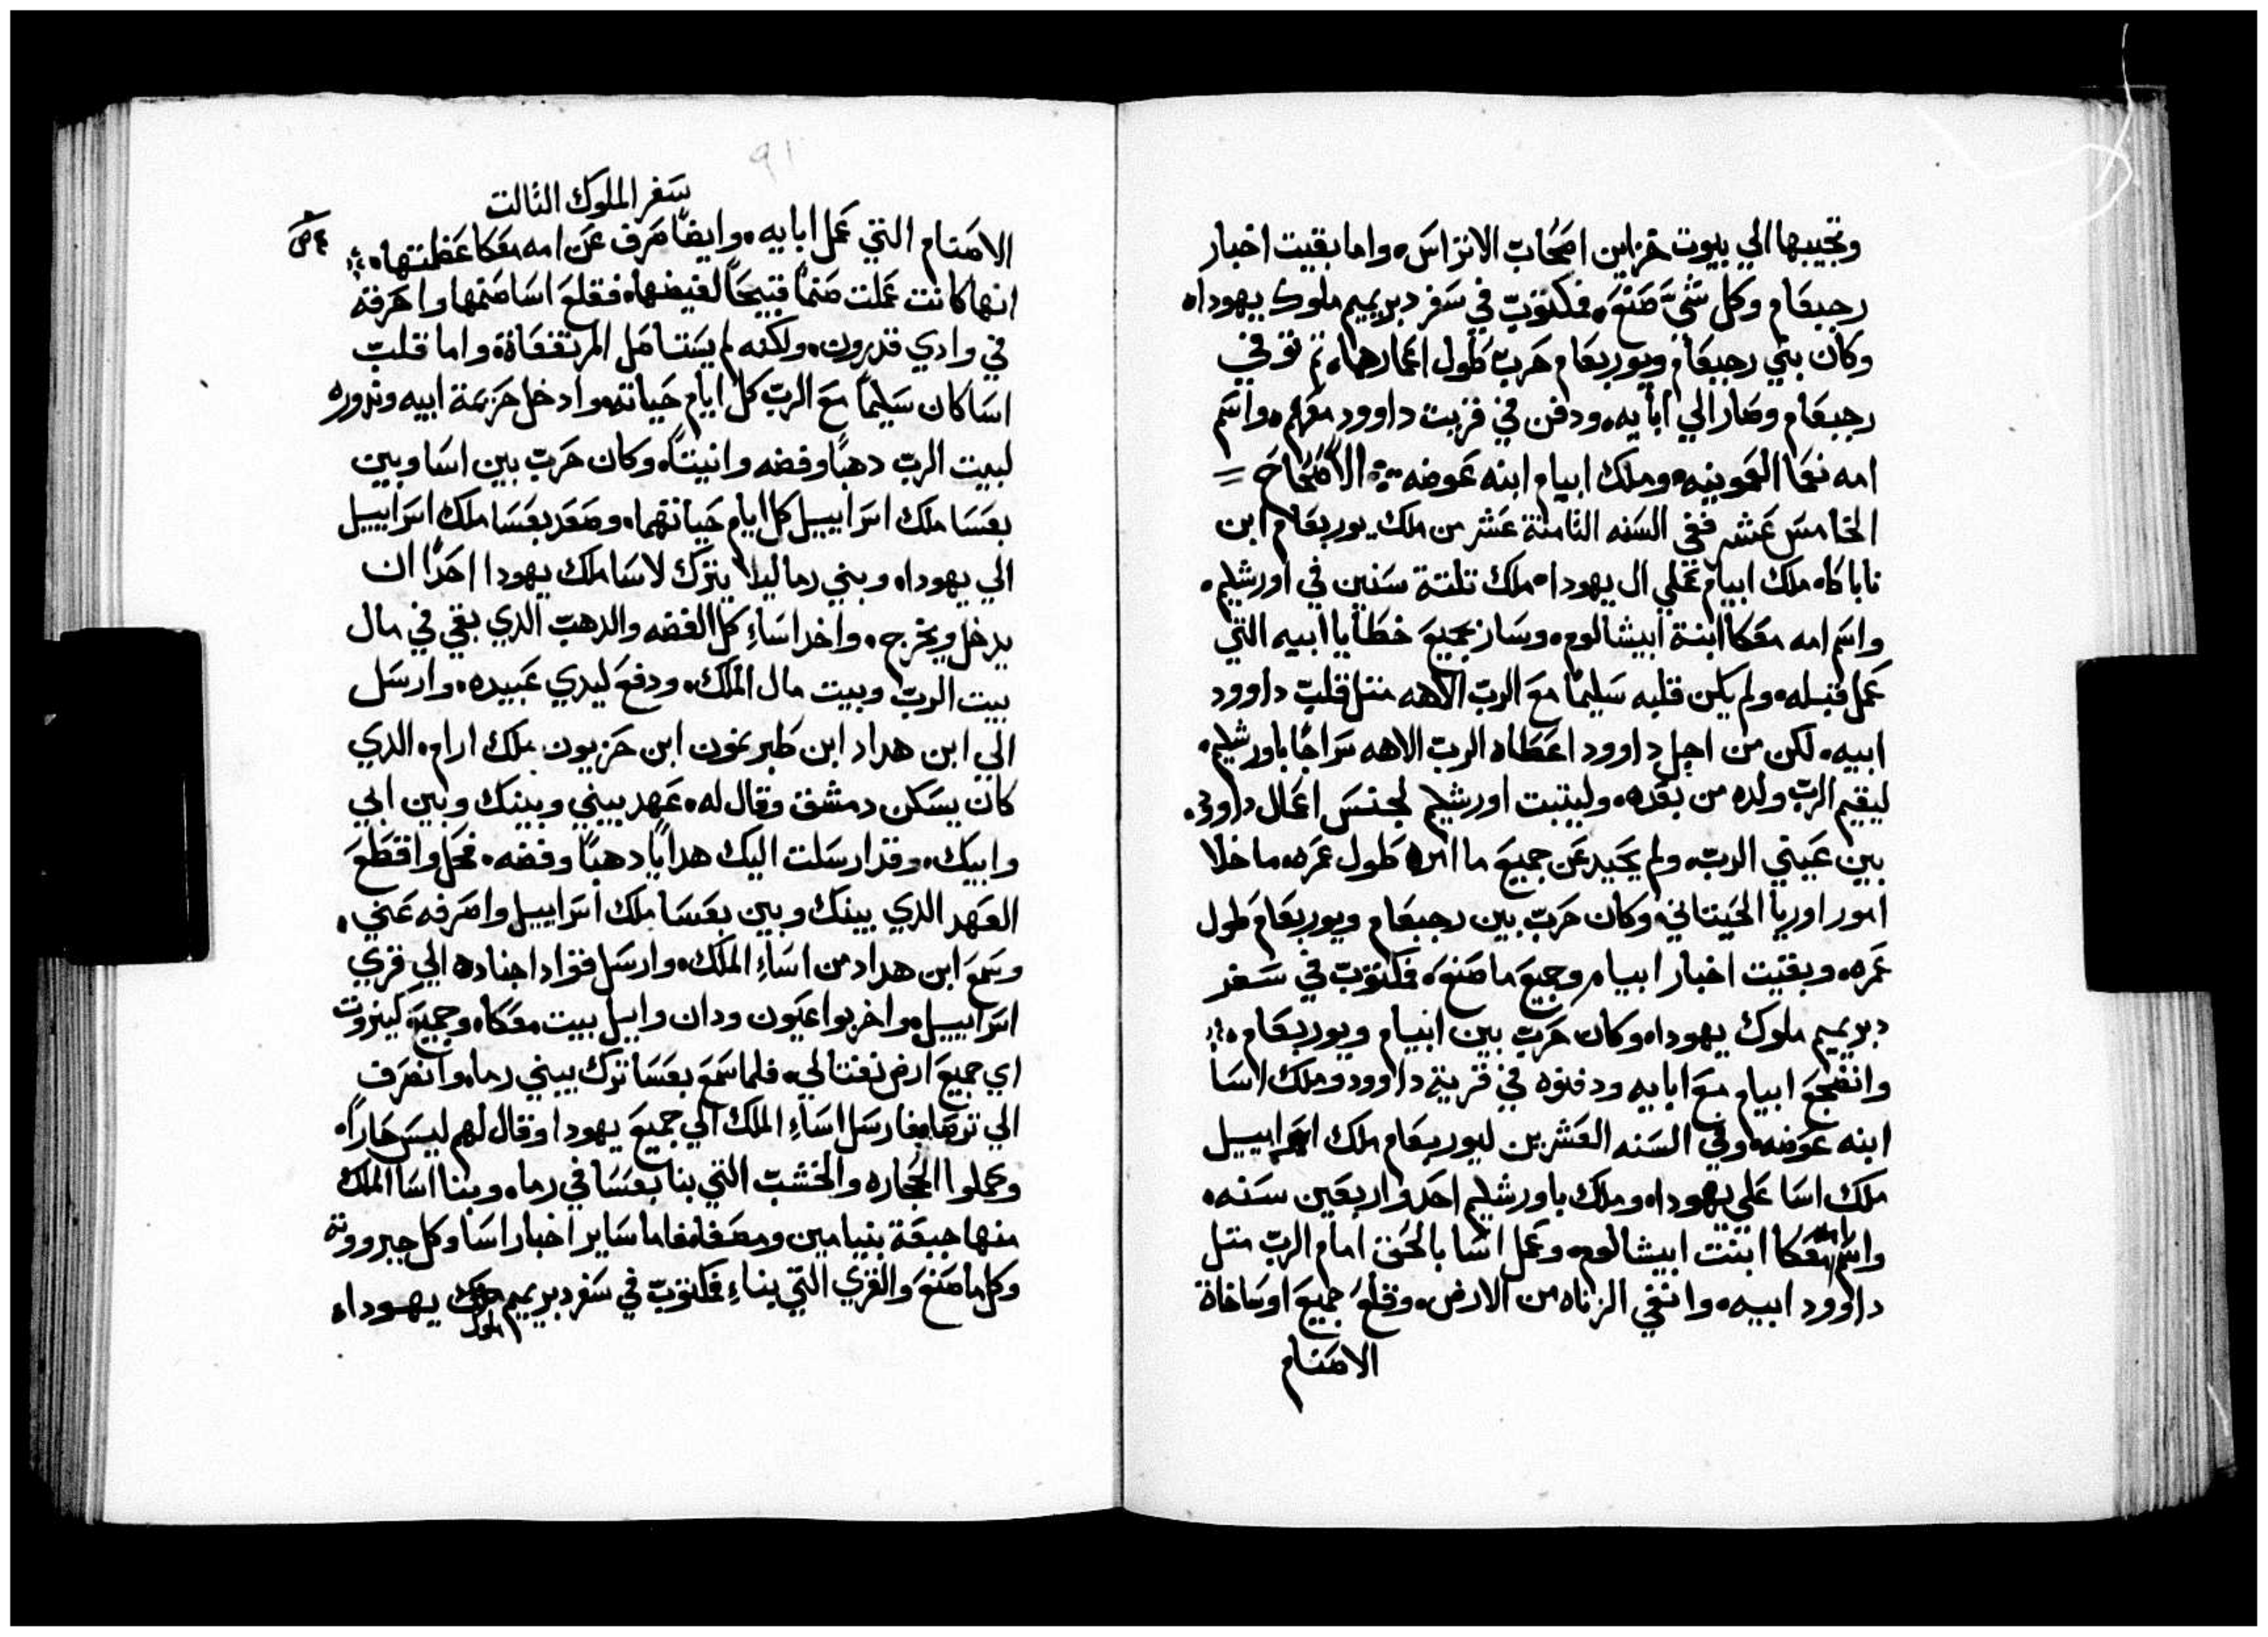 وتجيبها الي بيوت خزاين اصحاب الاتراس، واما بقيت اخبار
رجبعام وكل شيّ صنع، فمكتوب في سفر دبريميم ملوك يهودا،
وكان بني رجبعام ويوربعام حرب طول اعمارهما، تم توفي
رجبعام وصار الي ابايه، ودفن في قريت داوود معهم، واسم
امه نعما العمونيه، وملك ابيام ابنه عوضه الاصحاح
الخامس عشر ففي السنه الثامنة عشر من ملك يوربعام ابن
ناباكا، ملك ابيام علي ال يهودا، ملك تلتة سنين في اورشليم،
واسم امه معكا ابنة ابيشالوم، وسار بجميع خطايا ابيه التي
عمل قبله، ولم يكن قلبه سليمًا مع الرب الاهه متل قلب داوود
ابيه، لكن من اجل داوود اعطاه الرب الاهه سراجًا باورشليم،
ليقيم الرب ولده من بعده، وليتبت اورشليم لجنس اعمال داود،
بين عيني الرب، ولم يحيد عن جميع ما امره طول عمره ما خلا
امور اوريا الحيتاني، وكان حرب بين رجبعام ويوربعام طول
عمره، وبقيت اخبار ابيام وجميع ما صنع، فمكتوب في سفر
دبريميم ملوك يهودا، وكان حرب بين ابيام ويوربعام،
وانضجع ابيام مع ابايه ودفنوه في قرية داوود وملك اسا
ابنه عوضه، وفي السنه العشرين ليوربعام ملك اسراييل
ملك اسا علي يهودا، وملك باورشليم احد واربعين سنه،
واسم امه معكا ابنت ابيشالوم، وعمل اسا بالحق امام الرب متل
داوود ابيه، وانفي الزناه من الارض، وقلع جميع اوساخاة
الاصنام
سفر الملوك الثالت
الاصنام التي عمل ابايه، وايضًا صرف عن امه معكا عظمتها،
انها كانت عملت صنمًا قبيحًا لفيضها، فقلع اسا صنمها واحرقه
في وادي قدرون، ولكنه لم يستاصل المرتفعاة، واما قلب
اسا كان سليمًا مع الرب كل ايام حياته، وادخل حزيمة ابيه ونذوره
لبيت الرب دهبًا وفضه وانيتًا، وكان حرب بين اسا وبين
بعسا ملك اسراييل كل ايام حياتهما، وصعد بعسا ملك اسراييل
الي يهودا، وبني رما ليلا يترك لاسا ملك يهودا احدًا ان
يدخل ويخرج، واخد اساء كل الفضه والدهب الدي بقي في مال
بيت الرب وبيت مال الملك، ودفع ليدي عبيده، وارسل
الي ابن هداد ابن طبريمون ابن حزيون ملك ارام، الدي
كان يسكن دمشق وقال له، عهد بيني وبينك وبين ابي
وابيك، وقد ارسلت اليك هدايا دهبًا وفضه، فحل واقطع
العهد الدي بينك وبين بعسا ملك اسراييل واصرفه عني،
وسمع ابن هداد من اساء الملك، وارسل قواد اجناده الي قري
اسراييل، واخربوا عيون ودان وابيل بيت معكا، وجميع كينروت
اي جميع ارض نفتالي، فلما سمع بعسا ترك بيبني رما، وانصرف
الي ترصا، فارسل اساء الملك الي جميع يهودا وقال لهم ليس حارًا،
وحملوا الحجاره والخشب التي بنا بعسا في رما، وبنا اسا الملك
منها جبعة بنيامين ومصفا، فاما ساير اخبار اسا وكل جبروته
وكل ما صنع والقري التي بناء فمكتوب في سفر دبريميم ملوك يهودا،